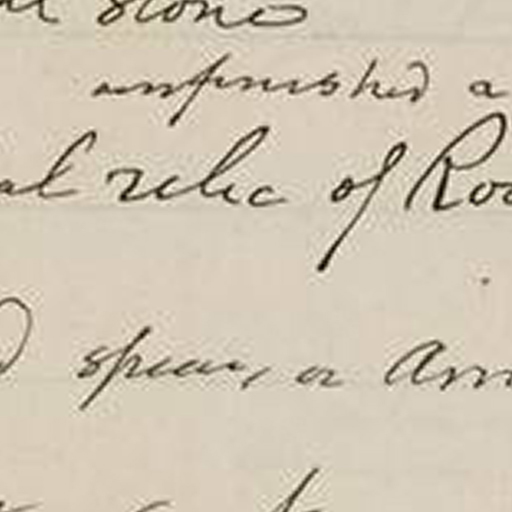 stone
unfinished a
al relic of Roc
d spear, or Arr